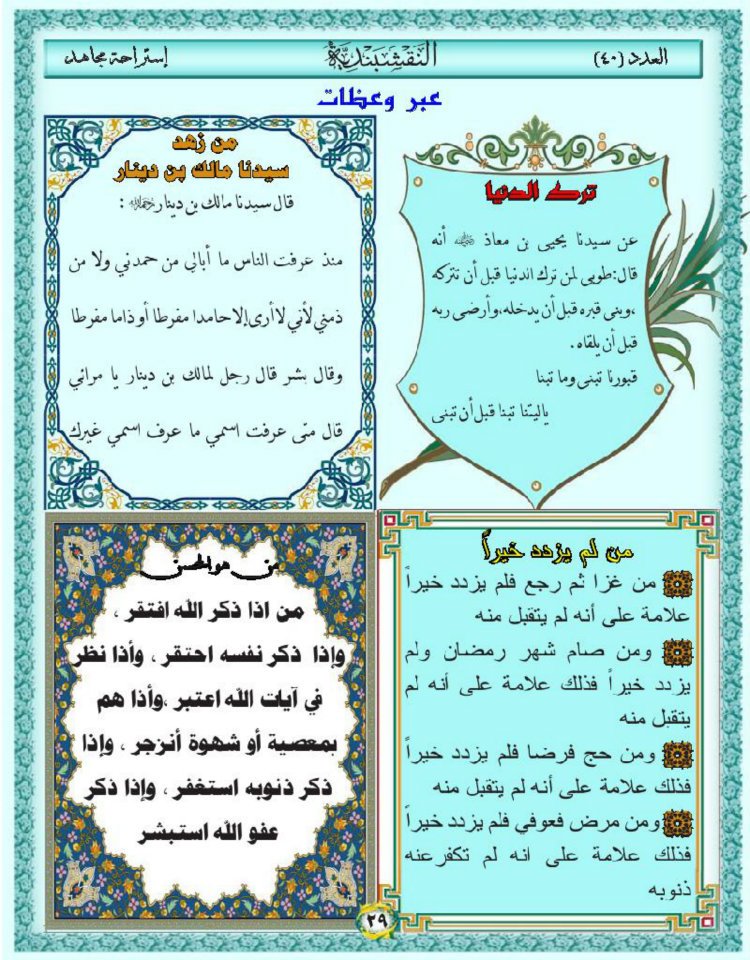 العدد (٤٠)
النقشبندية
إستراحة مجاهد
عبر وعظات
ترك الدنيا
عن سيدنا يحيى بن معاذ ﷺ أنه
قال:طوبى لمن ترك الدنيا قبل أن تتركه
،وبنى قبره قبل أن يدخله،وأرضى ربه
قبل أن يلقاه .
قبورنا تبنى وما تبنا
ياليتنا تبنا قبل أن تبنى
من زهد
سيدنا مالك بن دينار
قال سيدنا مالك بن دينار رحمه الله :
منذ عرفت الناس ما أبالي من حمدني ولا من
ذمني لأني لا أرى إلا حامدا مفرطا أو ذاما مفرطا
وقال بشر قال رجل لمالك بن دينار يا مرائي
قال متى عرفت اسمي ما عرف اسمي غيرك
من لم يزدد خيراً
من غزا ثم رجع فلم يزدد خيراً
علامة على أنه لم يتقبل منه
ومن صام شهر رمضان ولم
يزدد خيراً فذلك علامة على أنه لم
يتقبل منه
ومن حج فرضا فلم يزدد خيراً
فذلك علامة على أنه لم يتقبل منه
ومن مرض فعوفي فلم يزدد خيراً
فذلك علامة على انه لم تكفرعنه
ذنوبه
من هو المحسن
من اذا ذكر الله افتقر ،
وإذا ذكر نفسه احتقر ، وأذا نظر
في آيات الله اعتبر ،وأذا هم
بمعصية أو شهوة أنزجر ، وإذا
ذكر ذنوبه استغفر ، وإذا ذكر
عفو الله استبشر
٢٩